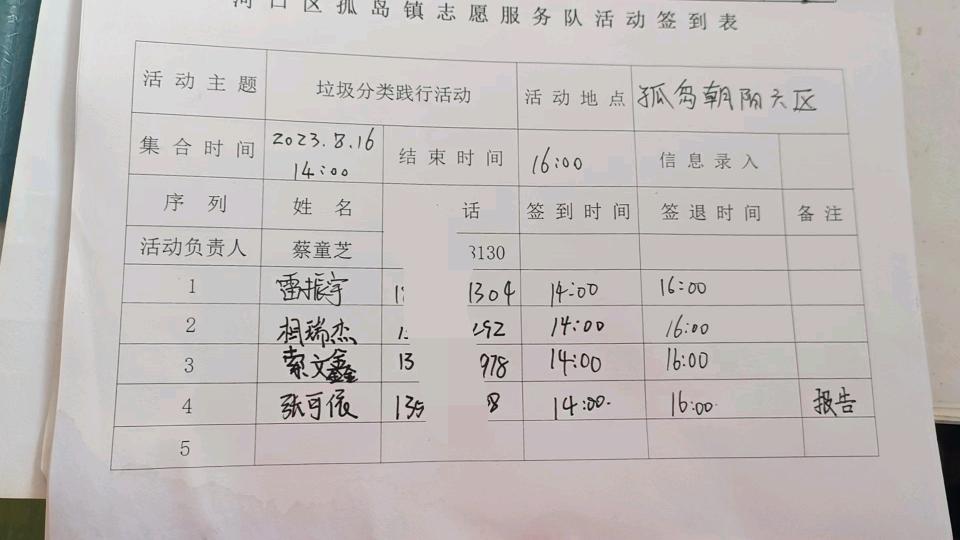 河口区孤岛镇志愿服务队活动签到表
活动主题 垃圾分类践行活动 活动地点 孤岛朝阳六区
集合时间 2023.8.16 14:00 结束时间 16:00 信息录入
序列 姓名 话 签到时间 签退时间 备注
活动负责人 蔡童芝 3130
1 雷振宇 1304 14:00 16:00
2 相瑞杰 292 14:00 16:00
3 索文鑫 13 978 14:00 16:00
4 张可依 135 8 14:00 16:00 报告
5